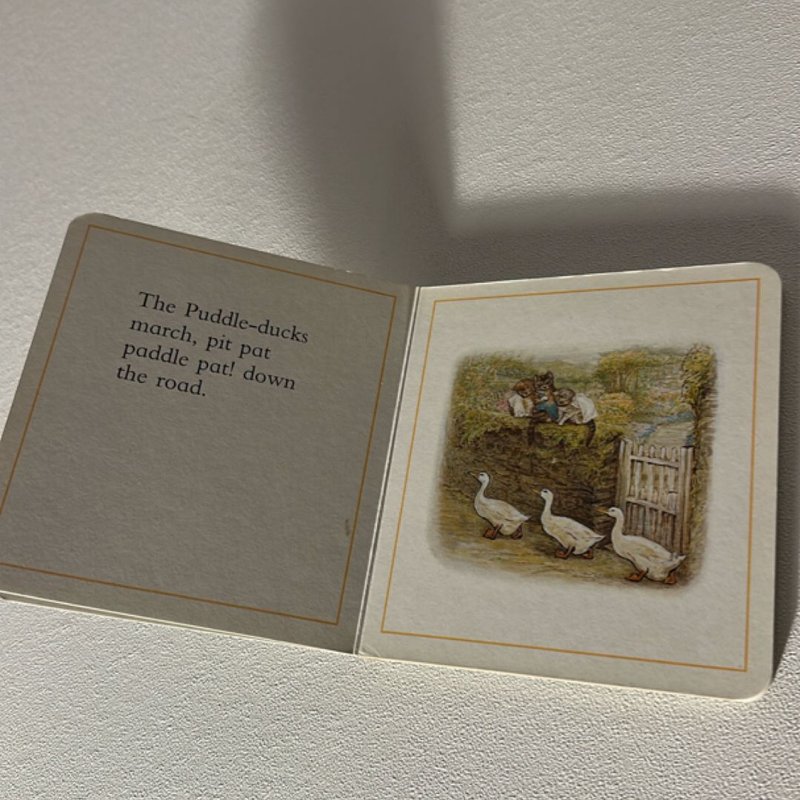 The Puddle-ducks
march, pit pat
paddle pat! down
the road.